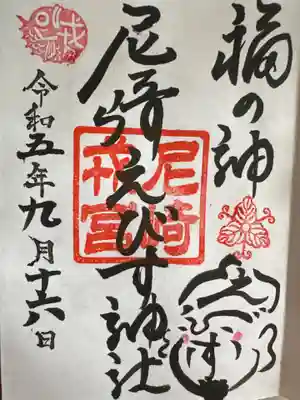 福の神
えびす
尼崎えびす神社
尼崎
戎宮
令和五年九月十六日